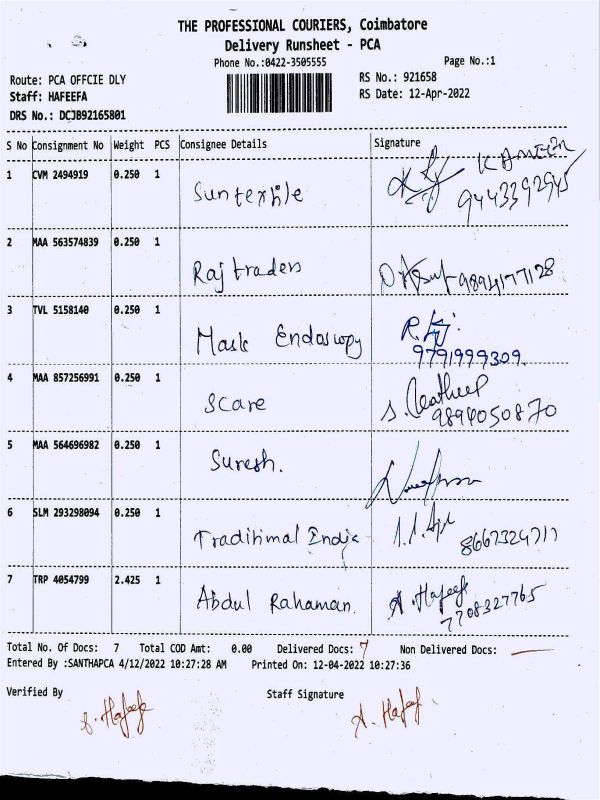 THE PROFESSIONAL COURIERS, Coimbatore
Delivery Runsheet - PCA
Phone No.:0422-3505555 Page No.:1
Route: PCA OFFCIE DLY RS No.: 921658
Staff: HAFEEFA RS Date: 12-Apr-2022
DRS No.: DCJB92165801
S No Consignment No Weight PCS Consignee Details Signature
1 CVM 2494919 0.250 1 Suntexhile KAMEER
9443392945
2 MAA 563574839 0.250 1 Raj traders 9894177128
3 TVL 5158140 0.250 1 Mask Endoscopy
9791999309.
4 MAA 857256991 0.250 1 Scare
9894050870
5 MAA 564696982 0.250 1 Suresh.
6 SLM 293298094 0.250 1 Traditimal India 8667324711
7 TRP 4054799 2.425 1 Abdul Rahaman. A. Hafeefa
7708327765
Total No. Of Docs: 7 Total COD Amt: 0.00 Delivered Docs: 7 Non Delivered Docs: —
Entered By :SANTHAPCA 4/12/2022 10:27:28 AM Printed On: 12-04-2022 10:27:36
Verified By Staff Signature